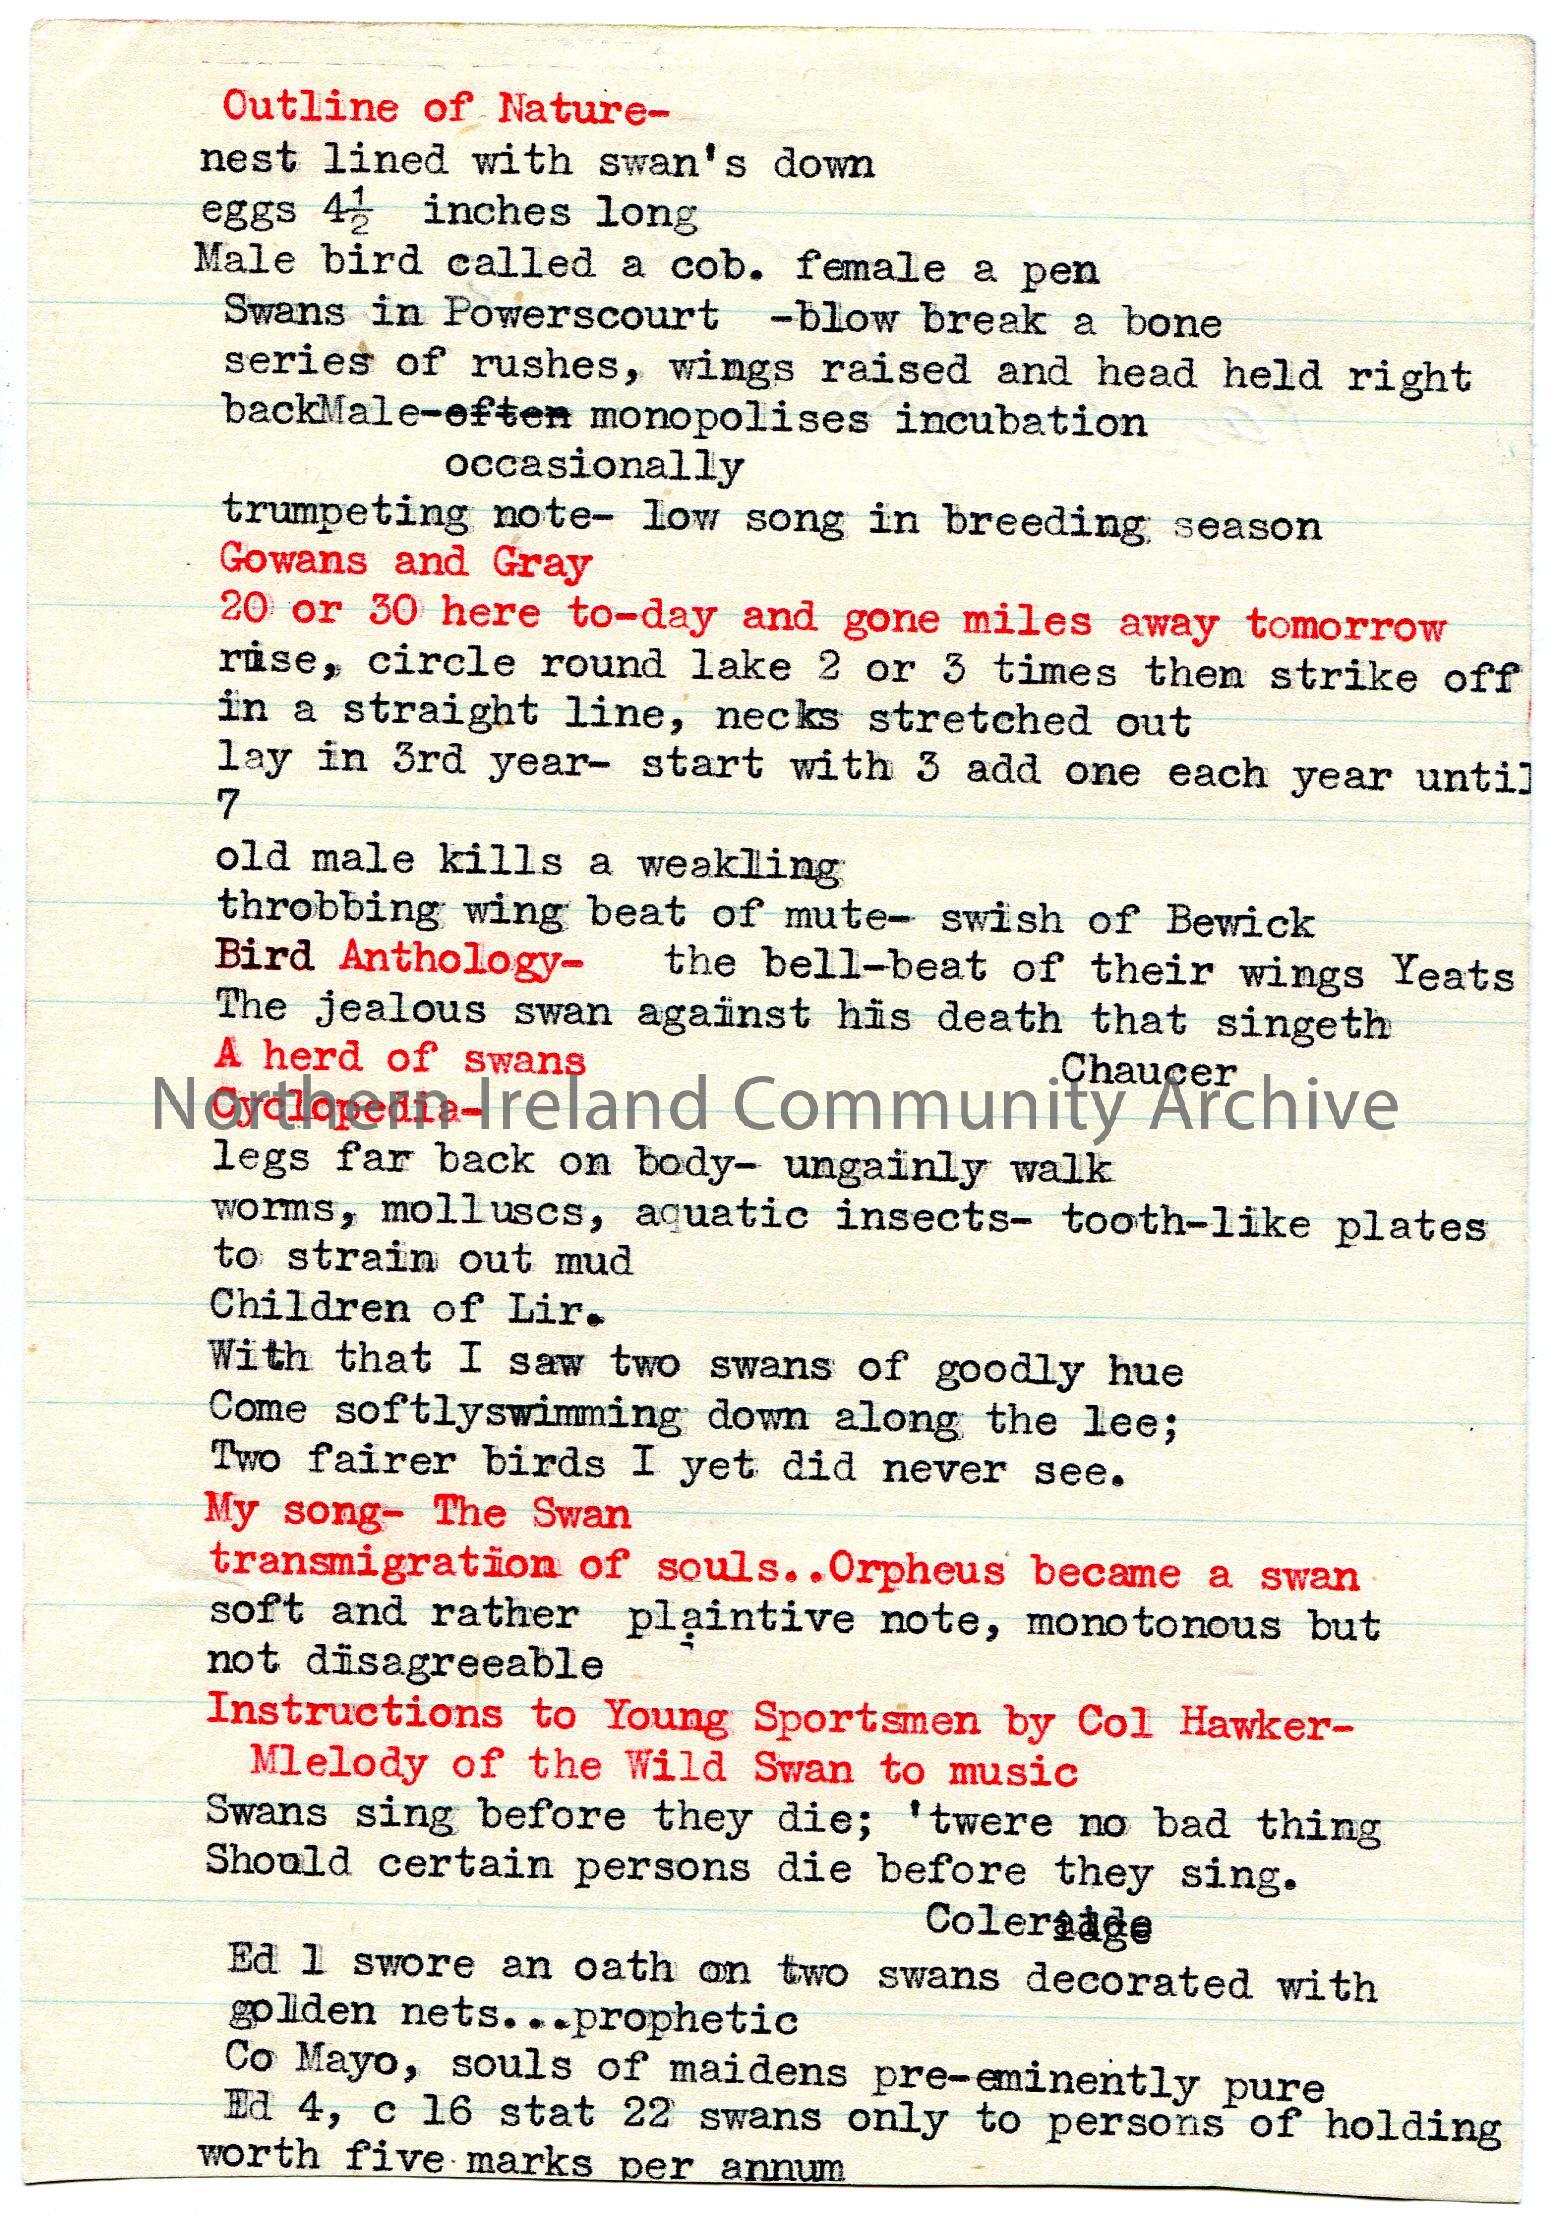 Outline of Nature-
nest lined with swan's down
eggs 4½ inches long
Male bird called a cob. female a pen
Swans in Powerscourt -blow break a bone
series of rushes, wings raised and head held right
backMale-often monopolises incubation
occasionally
trumpeting note- low song in breeding season
Gowans and Gray
20 or 30 here to-day and gone miles away tomorrow
rise, circle round lake 2 or 3 times then strike off
in a straight line, necks stretched out
lay in 3rd year- start with 3 add one each year until
7
old male kills a weakling
throbbing wing beat of mute- swish of Bewick
Bird Anthology- the bell-beat of their wings Yeats
The jealous swan against his death that singeth
A herd of swans Chaucer
Northern Ireland Community Archive
Cyclopedia-
legs far back on body- ungainly walk
worms, molluscs, aquatic insects- tooth-like plates
to strain out mud
Children of Lir.
With that I saw two swans of goodly hue
Come softlyswimming down along the lee;
Two fairer birds I yet did never see.
My song- The Swan
transmigration of souls..Orpheus became a swan
soft and rather plaintive note, monotonous but
not disagreeable
Instructions to Young Sportsmen by Col Hawker-
Mlelody of the Wild Swan to music
Swans sing before they die; 'twere no bad thing
Should certain persons die before they sing.
Coleridge
Ed 1 swore an oath on two swans decorated with
golden nets...prophetic
Co Mayo, souls of maidens pre-eminently pure
Ed 4, c 16 stat 22 swans only to persons of holding
worth five marks per annum